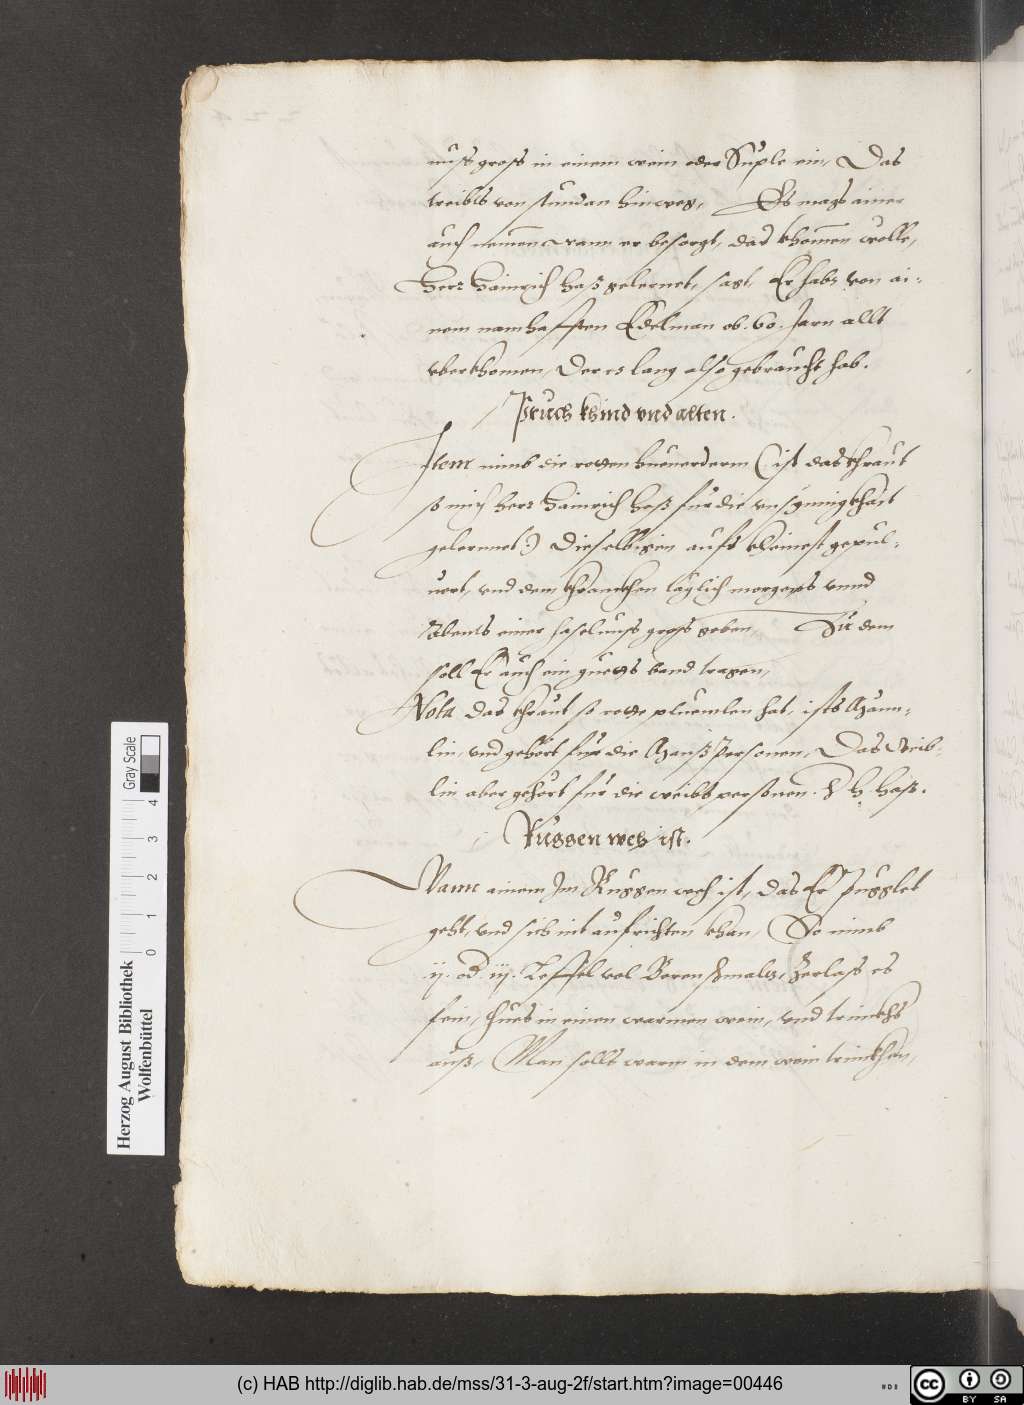 nuss gross in einem wein oder Suple ein, Das
treibts von stundan hinweg, Es mags ainer
auch nemen wann er besorgt, das khomen wolle,
Herr Hainrich Haß gelernet, sagt, Er habs von ai-
nem namhafften Edelman ob. 60. Jarn allt
vberkhomen, Der es lang also gebraucht hab.
Pruch khind vnd alten.
Item nimb die roten huenerderm (ist das khraut
so mich Herr Hainrich Haß für die vnsynnigkhait
gelernnet:) Dieselbigen aufs khleinest gepul-
uert, vnd dem khranckhen täglich morgens vnnd
Abents einer haselnuss gross geben, Zu dem
soll Er auch ein guets band tragen,
Nota das khraut so rote pluemlen hat, ists Männ-
lin, vnd gehört für die Manß Personen, Das Weib-
lin aber gehört für die weibs personen. H. H. Haß.
Ruggen weh ist.
Wann ainem Im Ruggen weh ist, das Er Puggket
geht, vnd sich nit aufrichten khan, So nimb
ij. od. iij. Leffel vol Beren schmaltz, Zerlass es
fein, thues in einen warmen wein, vnd trinckhs
auß, Man sollt warm in dem wein trinckhen,
Herzog August Bibliothek
Wolfenbüttel
0 1 2 3 4
Gray Scale
(c) HAB http://diglib.hab.de/mss/31-3-aug-2f/start.htm?image=00446
cc
BY SA